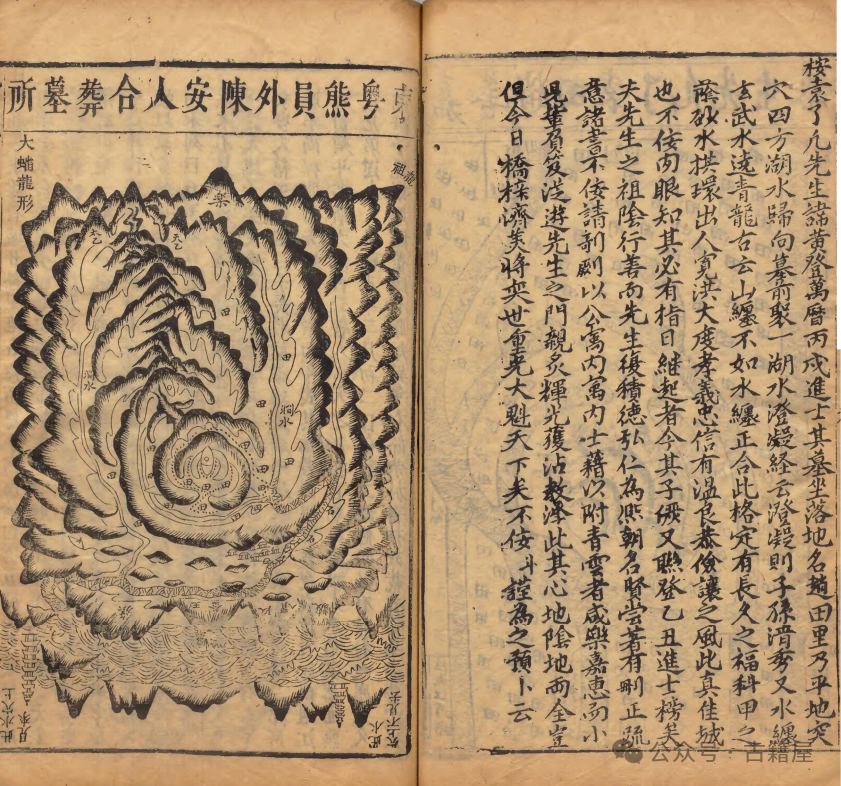 按袁了凡先生諱黃登萬曆丙戌進士其墓坐落地名趙田里乃平地突
穴四方湖水歸向墓前聚一湖水澄凝経云澄凝則子孫清秀又水纏
玄武水遶青龍古云山纏不如水纏正合此格定有長久之福科甲之
蔭砂水拱環出人寬洪大度孝義忠信有温良恭儉讓之風此真佳城
也不佞肉眼知其必有指日継起者今其子儼又聯登乙丑進士榜矣
夫先生之祖陰行善而先生復積德弘仁為熙朝名賢嘗著有刪正疏
意諸書不佞請剞劂以公寓内寓内士藉以附青雲者咸樂嘉惠而小
児輩負笈従遊先生之門親炙輝光獲沾教澤此其心地陰地両全豈
但今日橋梓濟美将奕世重光大魁天下矣不佞斗謹為之預卜云
東粤熊員外陳安人合葬墓所
龍祖
大蟠龍形
樂
太乙
天乙
澗水
澗水
田
此水穴上
見來
此水
穴上不見去
公众号·古籍屋